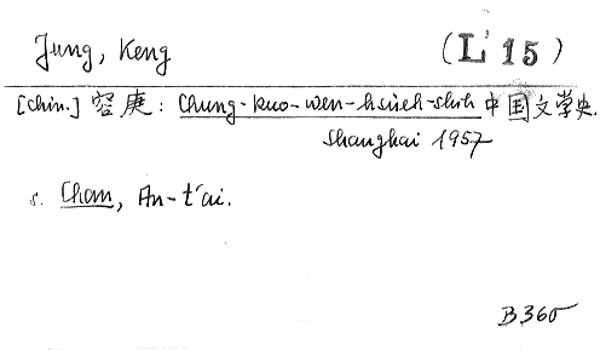 Jung, Keng (L 15)
[Chin.] 容庚: Chung-kuo-wen-hsüeh-shih 中国文学史.
Shanghai 1957
s. Chan, An-t'ai.
B 360